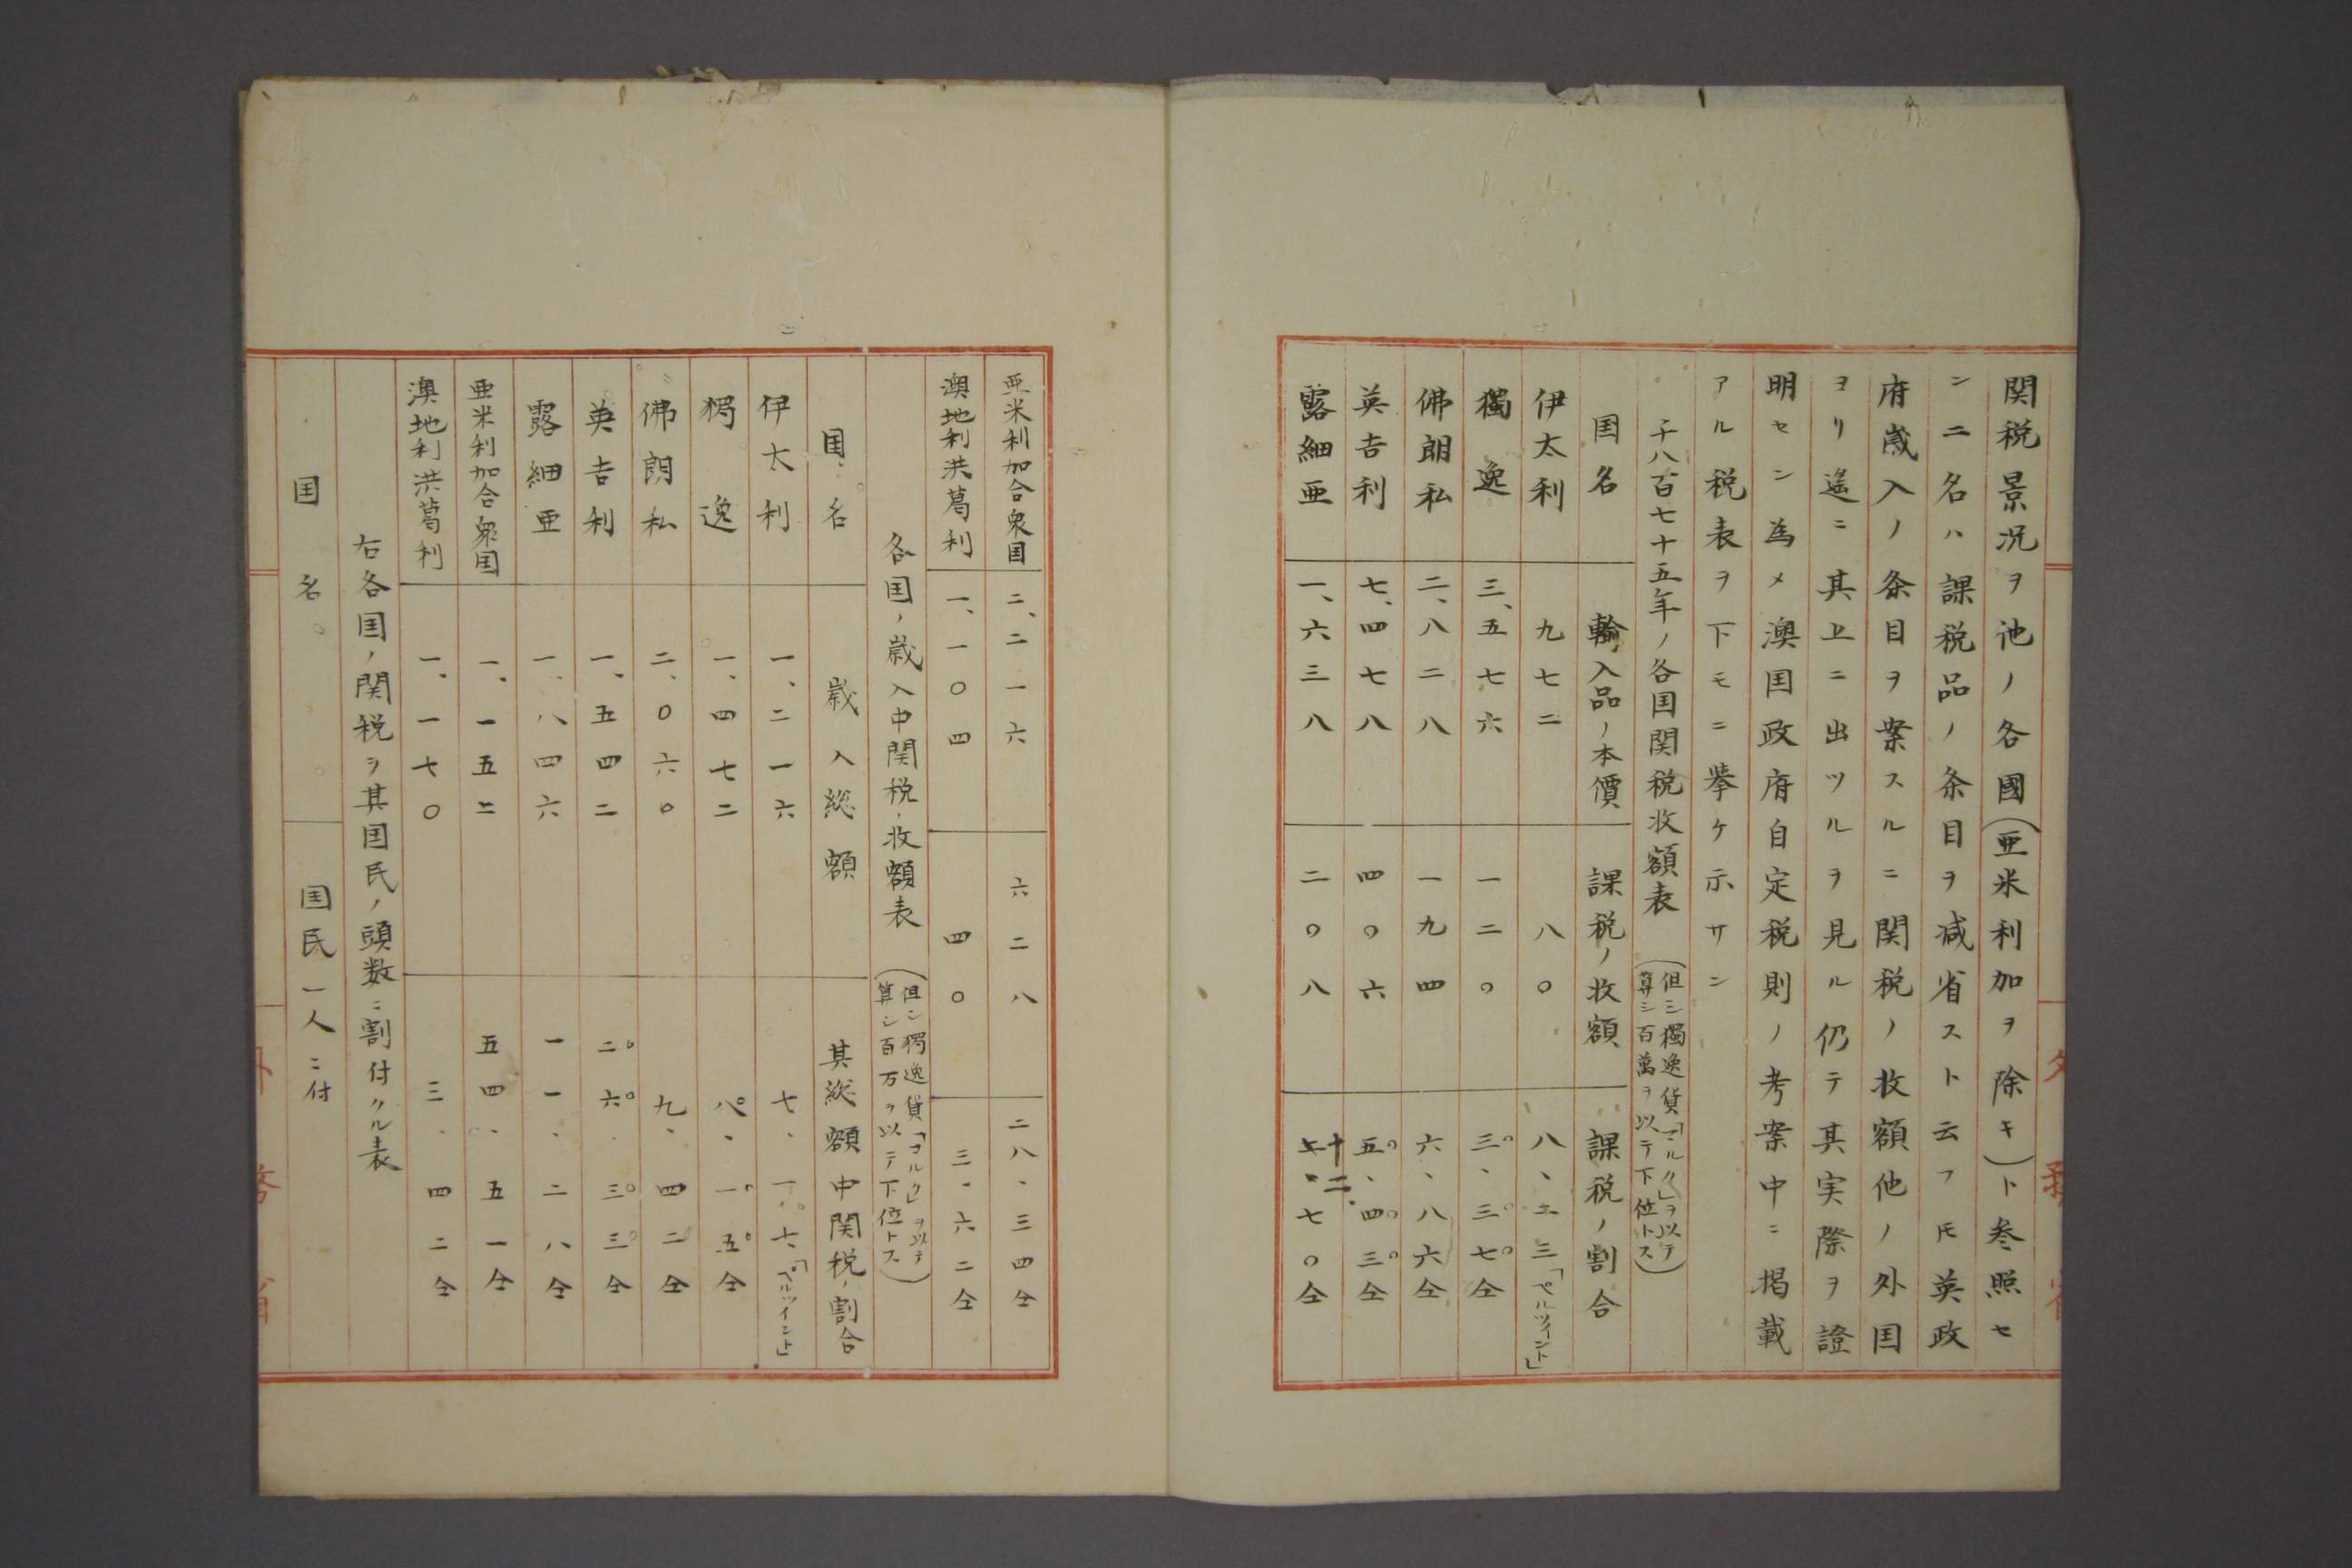 関税景況ヲ他ノ各國(亜米利加ヲ除キ)ト参照セ
ンニ名ハ課税品ノ条目ヲ減省スト云フ𪜈英政
府歳入ノ条目ヲ案スルニ関税ノ收額他ノ外囯
ヨリ遙ニ其上ニ出ツルヲ見ル仍テ其実際ヲ證
明センメ為メ澳囯政府自定税則ノ考案中ニ掲載
アル税表ヲ下モニ挙ケ示サン
千八百七十五年ノ各囯関税收額表
(但シ獨逸貨「マルク」ヲ以テ
算シ百萬ヲ以テ下位トス)
囯名 輸入品ノ本價 課税ノ收額 課税ノ割合
伊太利 九七二 八〇 八、二三「ペルツイント」
獨逸 三、五七六 一二〇 三、三七仝
佛朗私 二、八二八 一九四 六、八六仝
英吉利 七、四七八 四〇六 五、四三仝
露細亜 一、六三八 二〇八 十二、七〇仝
亜米利加合衆囯 二、二一六 六二八 二八、三四仝
澳地利洪葛利 一、一〇四 四〇 三、六二仝
各囯ノ歳入中関税ノ收額表
(但シ獨逸貨「マルク」ヲ以テ
算シ百万ヲ以テ下位トス)
囯名 歳入総額 其総額中関税ノ割合
伊太利 一、二一六 七、一七「ペルツイント」
獨逸 一、四七二 八、一五仝
佛朗私 二、〇六〇 九、四二仝
英吉利 一、五四二 二六、三三仝
露細亜 一、八四六 一一、二八仝
亜米利加合衆囯 一、一五二 五四、五一仝
澳地利洪葛利 一、一七〇 三、四二仝
右各囯ノ関税ヲ其囯民ノ頭数ニ割付クル表
囯名 囯民一人ニ付
外務省